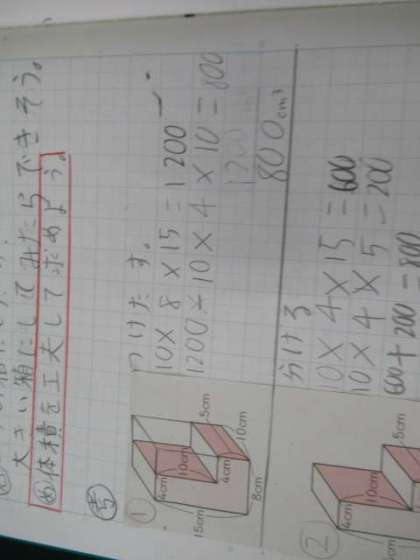 大きい箱にしてみたらできそう。
め 体積を工夫して求めよう。
つけたす。
10×8×15=1200
1200-10×4×10=800
800cm³
①
4cm
10cm
5cm
4cm
10cm
15cm
8cm
分ける
10×4×15=600
10×4×5=200
600+200=800
②
4cm
10cm
5cm
4cm